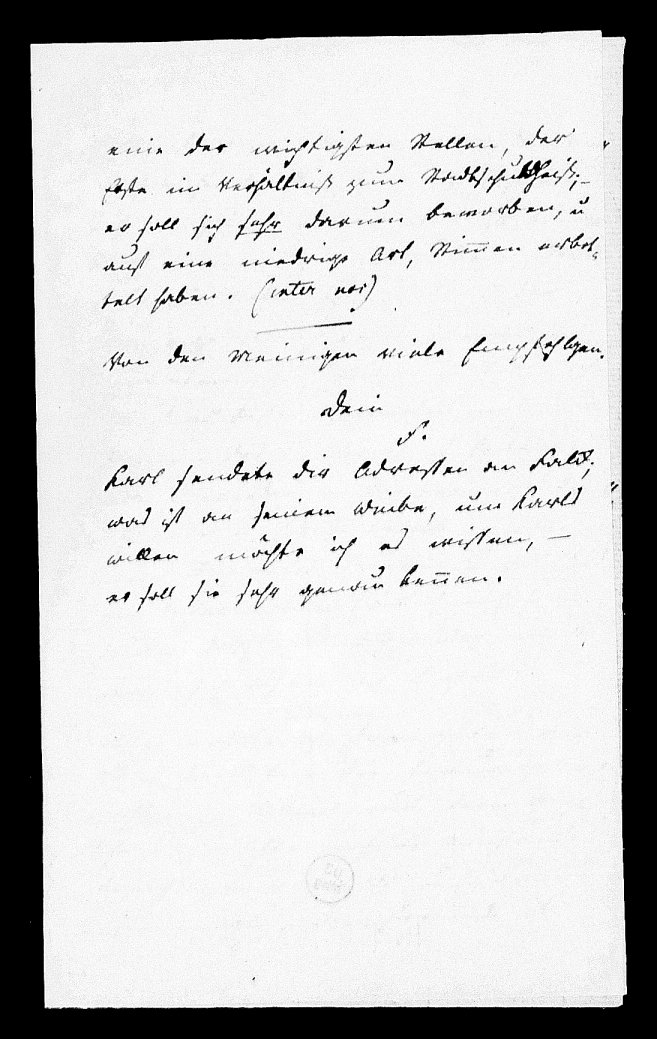 eine der wichtigsten Stellen, der
erste im Verhältniß zum Stadtschultheiß;–
er soll sich sehr darum beworben, u
auf eine niedrige Art, Stim̅en erbet-
telt haben. (inter nos)
Von den Meinigen viele Empfehlgen.
Dein
F.
Karl sendete dir Adressen an
was ist an seinem Weibe, um Karls
willen möchte ich es wissen, –
er soll sie sehr genau ken̅en.